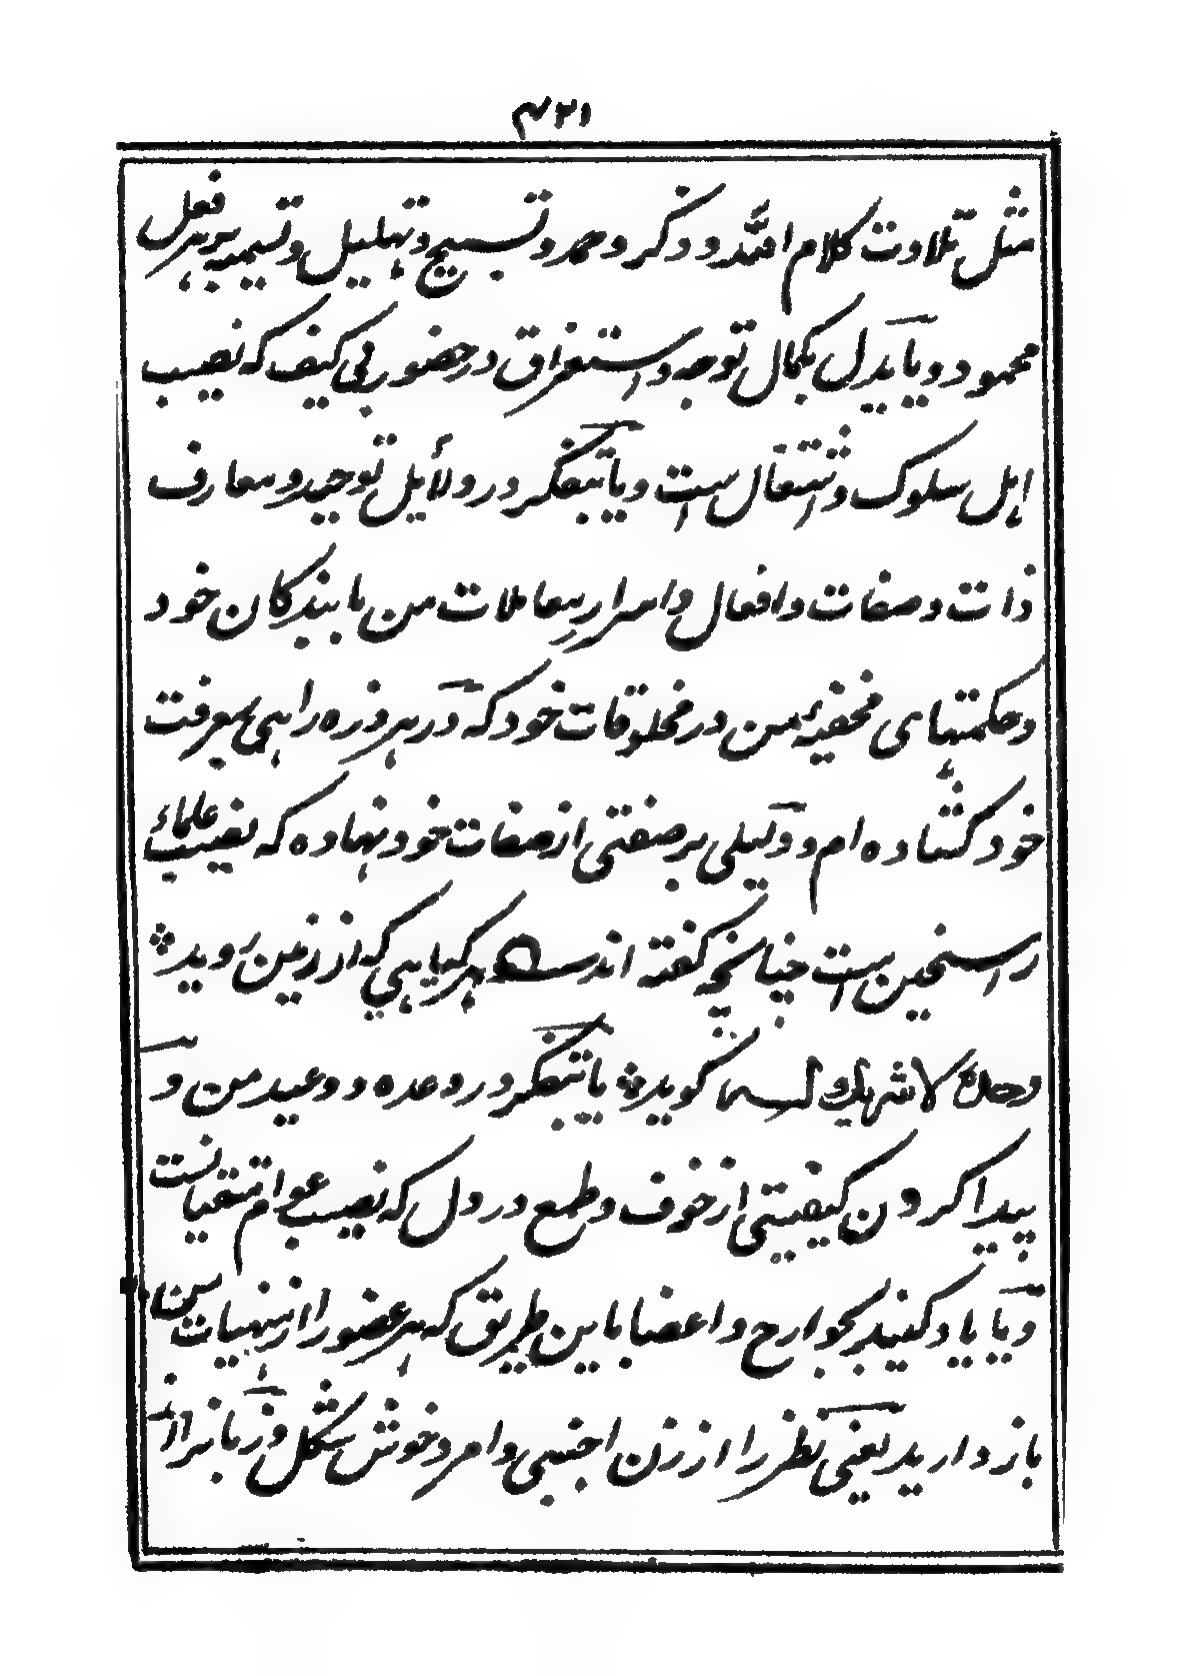 ۴۲۱
مثل تلاوت کلام الله و ذکر و حمد و تسبیح و تهلیل و تسمیه بر هر فعل
محمود و یا بدل بکمال توجه و استغراق در حضور بی کیف که نصیب
اهل سلوک و اشتغال است و یا بتفکر در دلایل توحید و معارف
ذات و صفات و افعال و اسرار معاملات من با بندکان خود
و حکمتهای مخفیهٔ من در مخلوقات خود که در هر ذره راهی بمعرفت
خود کشاده ام و دلیلی بر صفتی از صفات خود نهاده که نصیب علماء
راسخین است چنانچه کفته اند ه هر کیاهی که از زمین روید ؞
وحده لا شریک له کوید ؞ یا بتفکر در وعده و وعید من و
پیدا کردن کیفیتی از خوف و طمع در دل که نصیب عوام متقیانست
و یا یاد کنید بجوارح و اعضا باین طریق که هر عضو را از منهیات من
باز دارید یعنی نظر را از زن اجنبی و امرد خوش شکل و زبانرا از